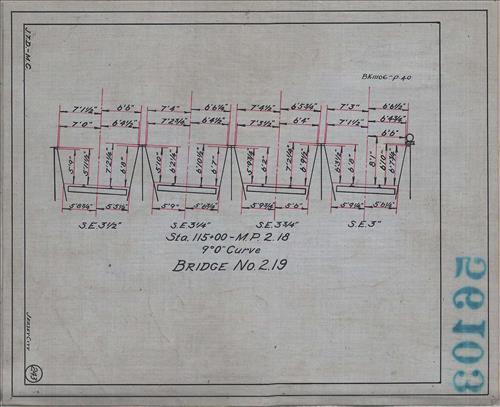 J.T.D-M.C
BK1106-P.40
7'1½" 6'6" 7'4" 6'6¼" 7'4½" 6'5¾" 7'3" 6'6½"
7'0" 6'4½" 7'2¾" 6'4½" 7'3½" 6'4" 7'1½" 6'4¾"
6'6"
5'9" 5'11½" 7'2¼" 6'8" 5'10" 6'2¼" 6'10½" 6'7" 5'9¾" 6'2" 7'2¼" 6'9½" 6'8" 8'1" 6'10" 6'7¾"
5'8¾" 5'5½" 5'9" 5'6¾" 5'9¾" 5'6" 5'9¼" 5'6½"
S.E.3½" S.E.3¼" S.E.3¾" S.E.3"
Sta. 115+00-M.P. 2.18
9°0' Curve
BRIDGE No. 2.19
56103
JERSEY CITY
243